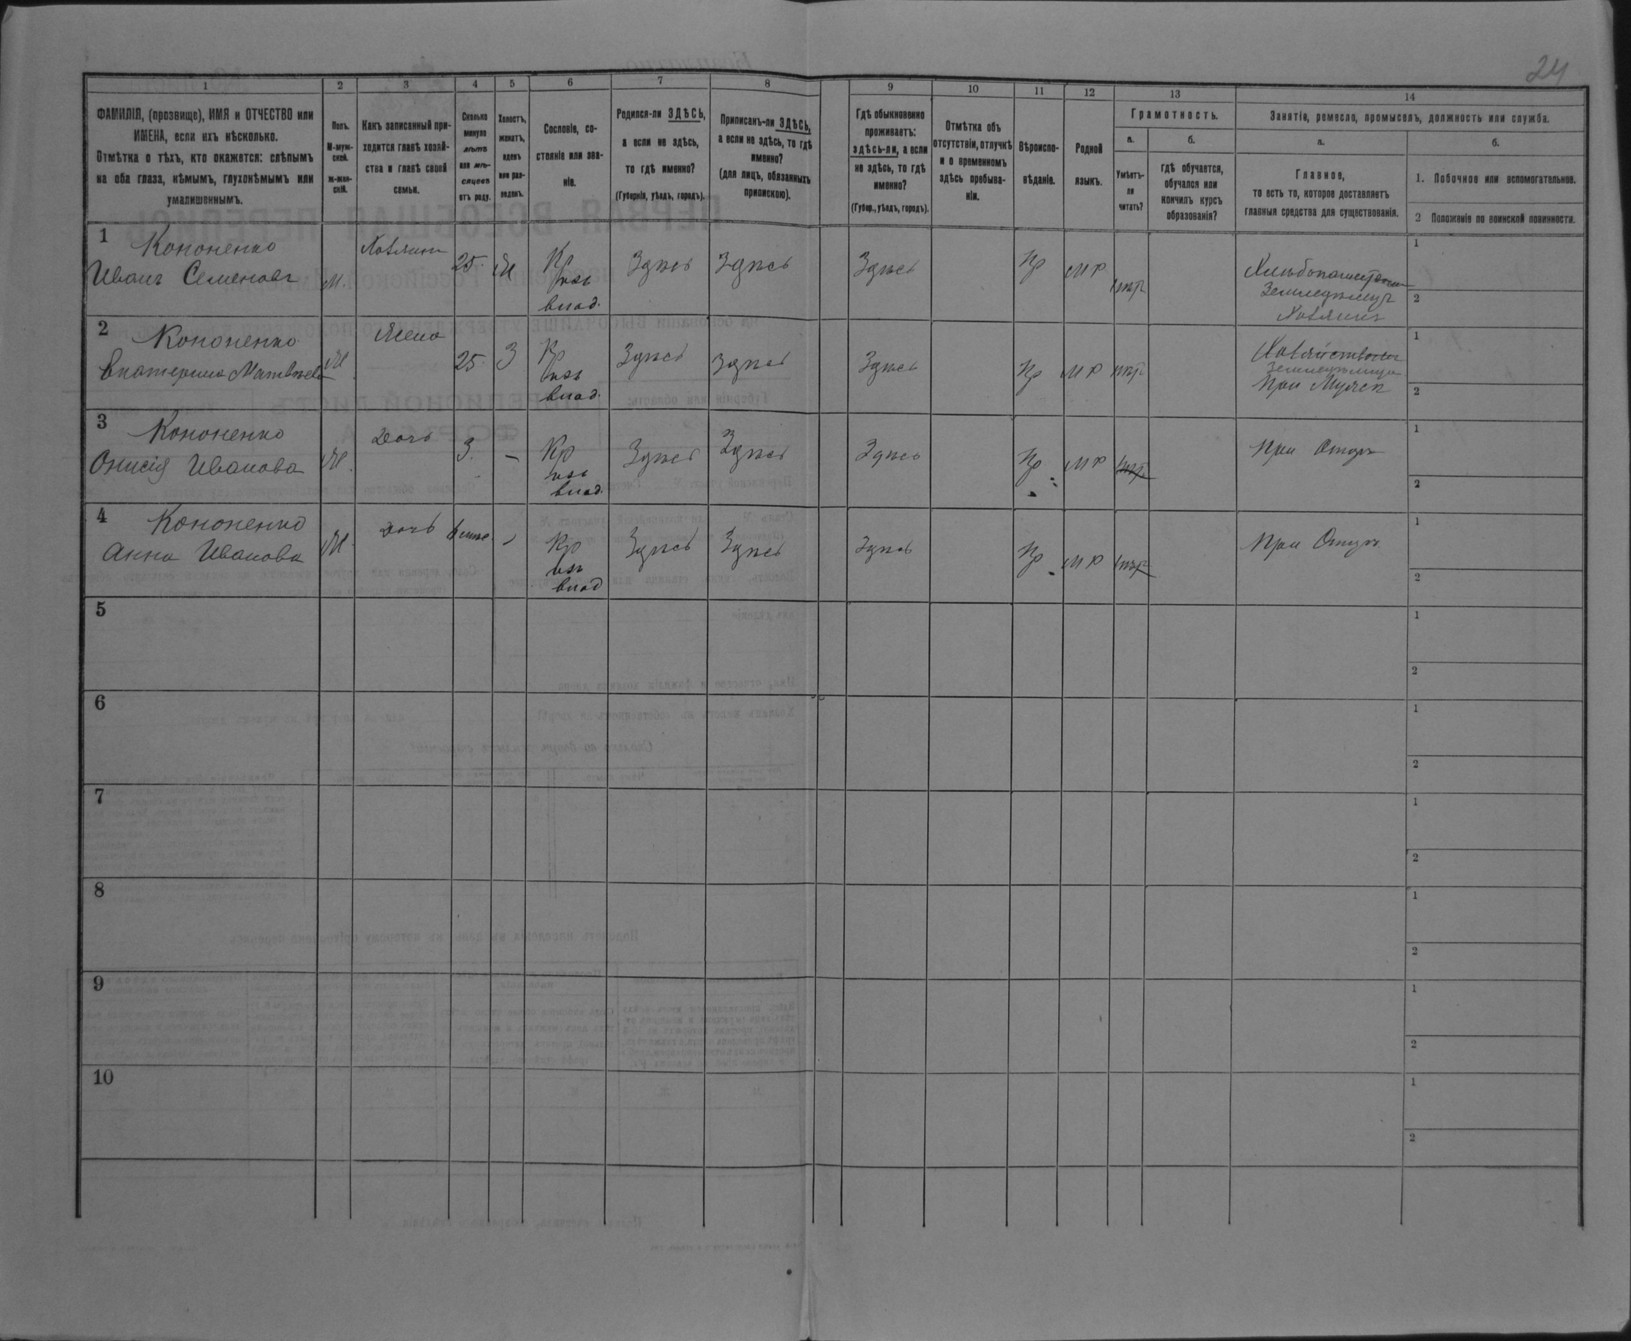 24
1 2 3 4 5 6 7 8 9 10 11 12 13 14
ФАМИЛІЯ, (прозвище), ИМЯ и ОТЧЕСТВО или
ИМЕНА, если ихъ нѣсколько.
Отмѣтка о тѣхъ, кто окажется: слѣпымъ
на оба глаза, нѣмымъ, глухонѣмымъ или
умалишеннымъ.
Полъ.
М-муж-
ской.
ж-жен-
скій.
Какъ записанный при-
ходится главѣ хозяй-
ства и главѣ своей
семьи.
Сколько
минуло
лѣтъ
или мѣ-
сяцевъ
отъ роду.
Холостъ,
женатъ,
вдовъ
или раз-
веденъ.
Сословіе, со-
стояніе или зва-
ніе.
Родился-ли ЗДѢСЬ,
а если не здѣсь,
то гдѣ именно?
(Губернія, уѣздъ, городъ).
Приписанъ-ли ЗДѢСЬ,
а если не здѣсь, то гдѣ
именно?
(для лицъ, обязанныхъ
припискою).
Гдѣ обыкновенно
проживаетъ:
здѣсь-ли, а если
не здѣсь, то гдѣ
именно?
(Губер., уѣздъ, городъ).
Отмѣтка объ
отсутствіи, отлучкѣ
и о временномъ
здѣсь пребыва-
ніи.
Вѣроиспо-
вѣданіе.
Родной
языкъ.
Грамотность.
а.
Умѣетъ-
ли
читать?
б.
гдѣ обучается,
обучался или
кончилъ курсъ
образованія?
Занятіе, ремесло, промыселъ, должность или служба.
а.
Главное,
то есть то, которое доставляетъ
главныя средства для существованія.
б.
1. Побочное или вспомогательное.
2 Положеніе по воинской повинности.
1
Кононенко
Иванъ Семеновъ
М.
Хозяинъ
25
Кр
изъ
влад.
Здѣсь
Здѣсь
Здѣсь
Пр
МР
Хлѣбопашество
Земледѣлецъ
Хозяинъ
1
2
2
Кононенко
Екатерина Матвѣева
Ж
Жена
25
З
Кр
изъ
влад.
Здѣсь
Здѣсь
Здѣсь
Пр
МР
При Мужѣ
1
2
3
Кононенко
Онисія Иванова
Ж.
Дочь
3.
–
Кр
изъ
влад.
Здѣсь
Здѣсь
Здѣсь
Пр
МР
При Отцѣ
1
2
4
Кононенко
Анна Иванова
Ж.
Дочь
Кр
изъ
влад
Здѣсь
Здѣсь
Здѣсь
Пр
МР
При Отцѣ
1
2
5
1
2
6
1
2
7
1
2
8
1
2
9
1
2
10
1
2